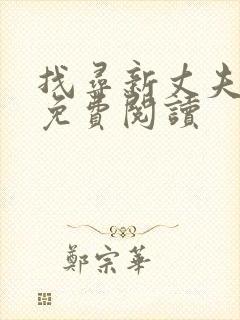 找尋新丈夫
免費閱讀
鄭宗華